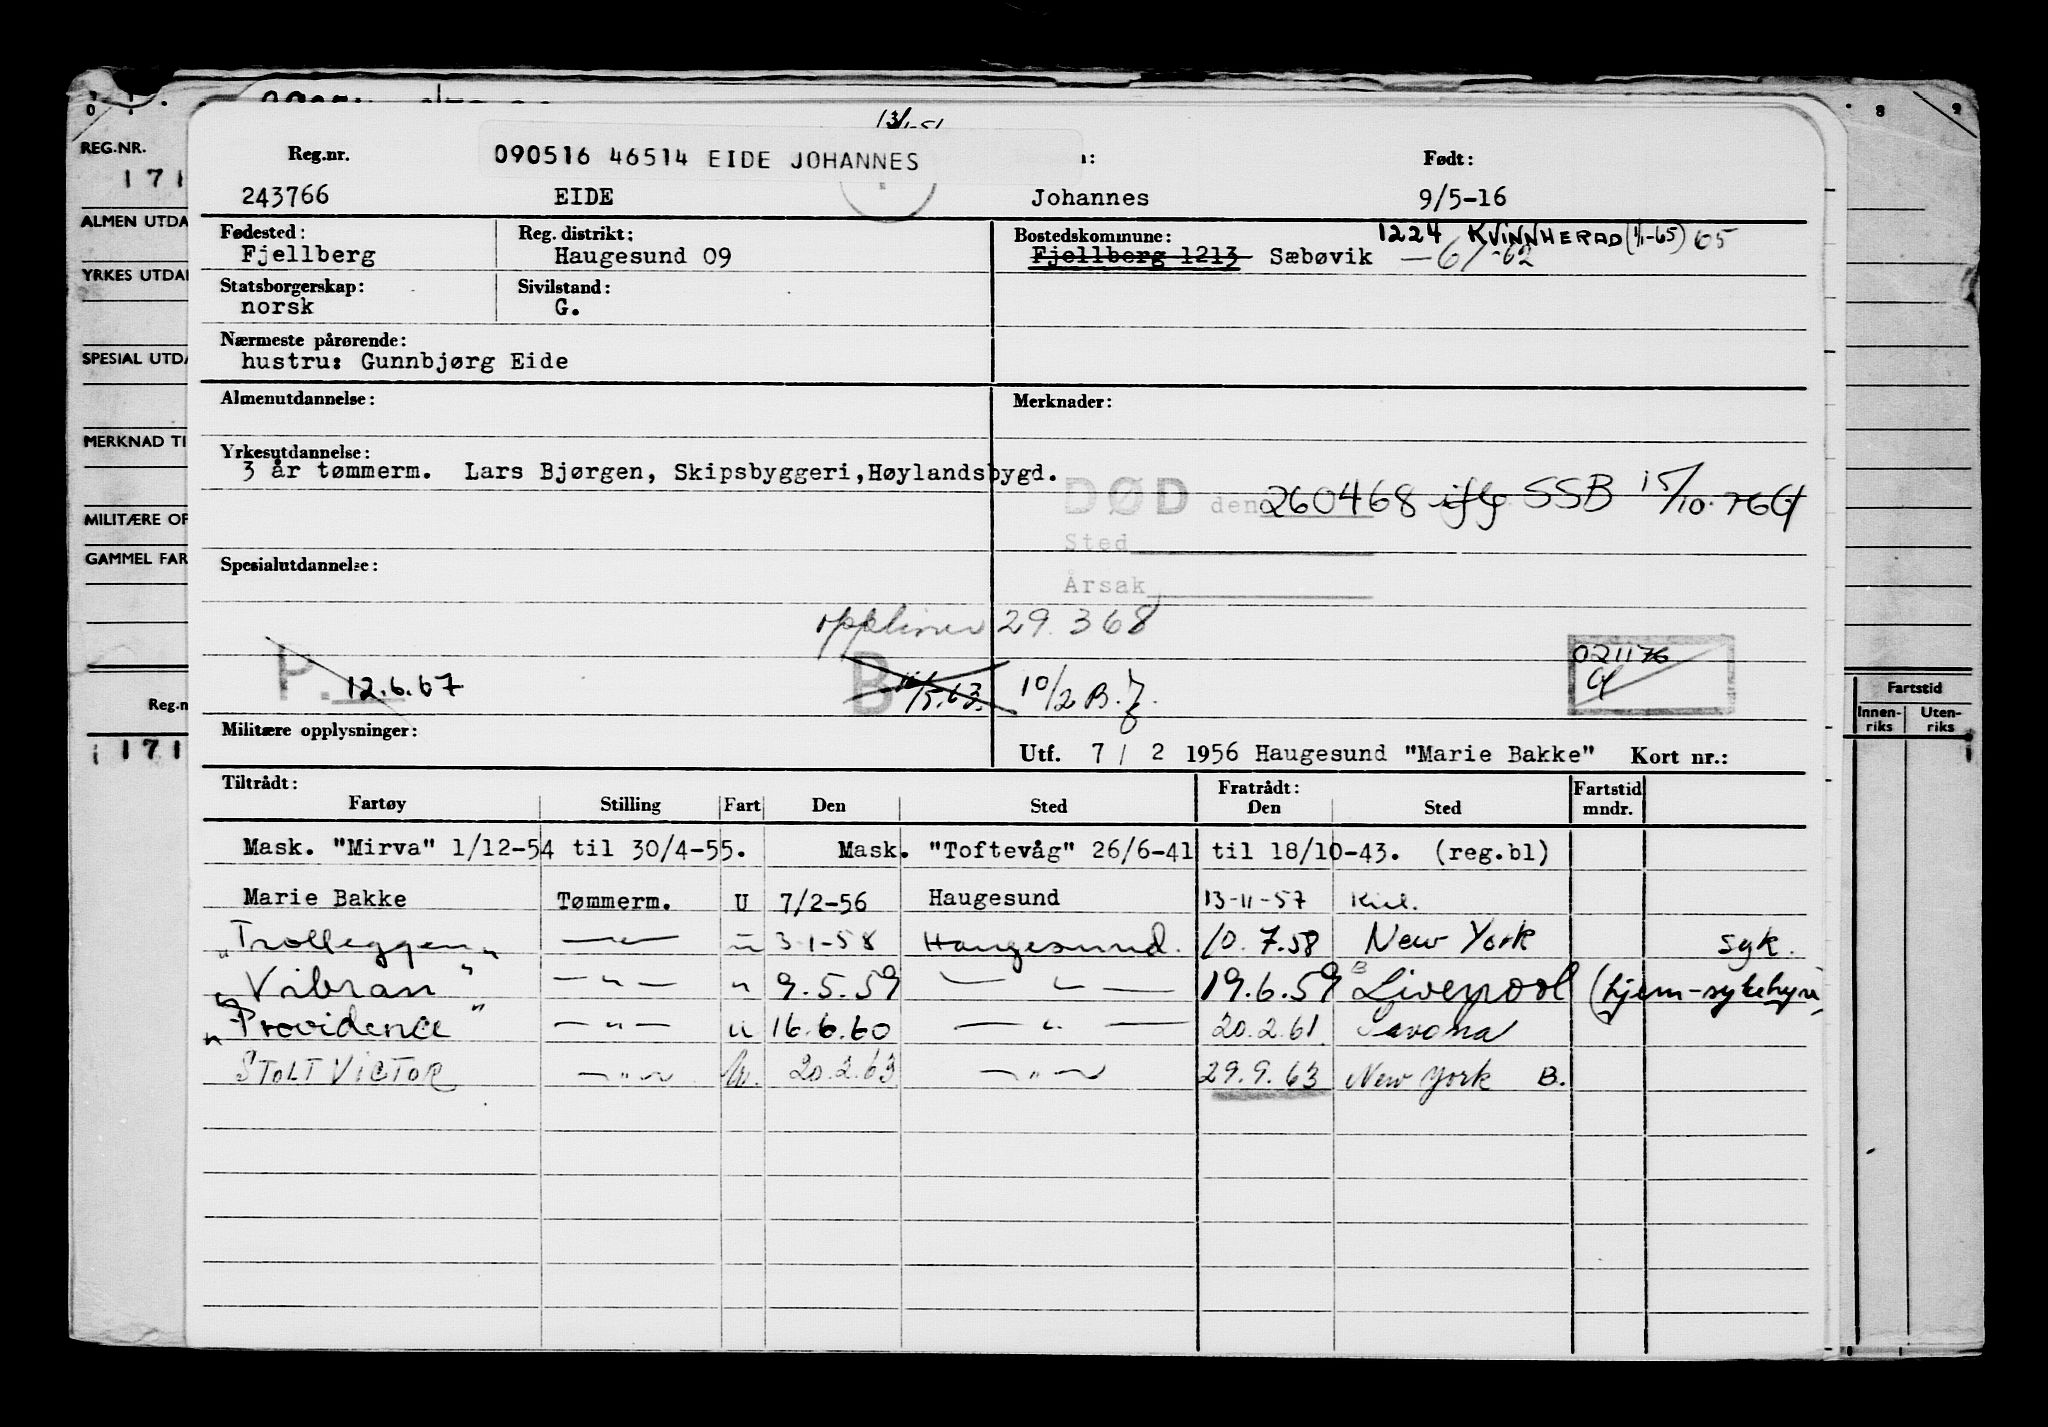 13/1-51
REG.NR.
171
ALMEN UTDA
YRKES UTDA
SPECIAL UTDA
MERKNAD TI
MILITÆRE OP
GAMMEL FAR
Reg.n
171
8 9
Fartstid
Innen-riks Uten-riks
Reg.nr. 090516 46514 EIDE JOHANNES Født:
243766 EIDE Johannes 9/5-16
Fødested: Reg. distrikt: Bostedskommune: 1224 KVINNHERAD (1/1-65) 65
Fjellberg Haugesund 09 Fjellberg 1213 Sæbøvik
Statsborgerskap: Sivilstand:
norsk G.
Nærmeste pårørende:
hustru: Gunnbjørg Eide
Almenutdannelse: Merknader:
Yrkesutdannelse:
3 år tømmerm. Lars Bjørgen, Skipsbyggeri, Høylandsbygd.
DØD den 260468 iflg SSB 15/10.76
Sted
Spesialutdannelse:
Årsak
29.368
P. 12.6.67 B 10/2 B.
021176
Militære opplysninger:
Utf. 7 / 2 1956 Haugesund "Marie Bakke" Kort nr.:
Tiltrådt: Fratrådt: Fartstid
Fartøy Stilling Fart Den Sted Den Sted mndr.
Mask. "Mirva" 1/12-54 til 30/4-55. Mask. "Toftevåg" 26/6-41 til 18/10-43. (reg.bl)
Marie Bakke Tømmerm. U 7/2-56 Haugesund 13-11-57 Kiel.
"Trolleggen" —"— " 3-1-58 Haugesund. 10.7.58 New York syk.
"Vibran" —"— " 9.5.59 —"— 19.6.59 Liverpool (hjem-sykehyre)
"Providence" —"— " 16.6.60 —"— 20.2.61 Savona
STOLT VICTOR —"— U. 20.2.63 —"— 29.9.63 New York B.